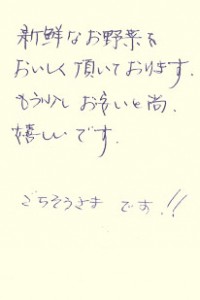 新鮮なお野菜を
おいしく頂いております.
もう少しお安いと尚、
嬉しいです.
ごちそうさまです!!